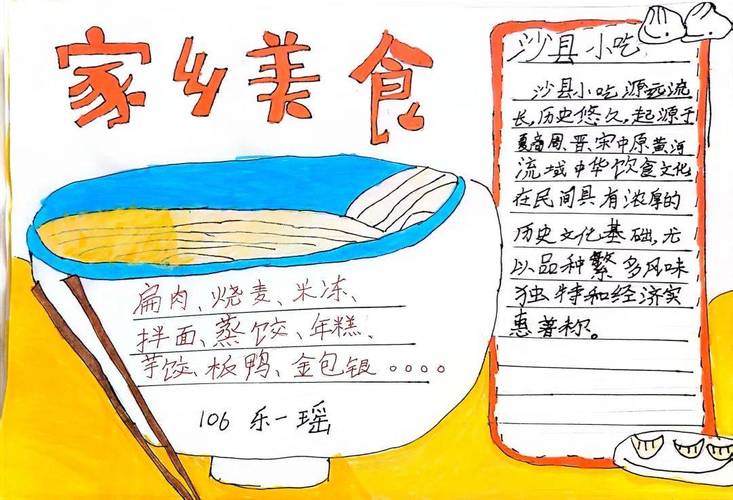 家乡美食
扁肉、烧麦、米冻、
拌面、蒸饺、年糕、
芋饺、板鸭、金包银。。。。
106 乐一瑶
沙县小吃
沙县小吃源远流
长,历史悠久,起源于
夏商周、晋、宋中原黄河
流域中华饮食文化
在民间具有浓厚的
历史文化基础,尤
以品种繁多风味
独特和经济实
惠著称。